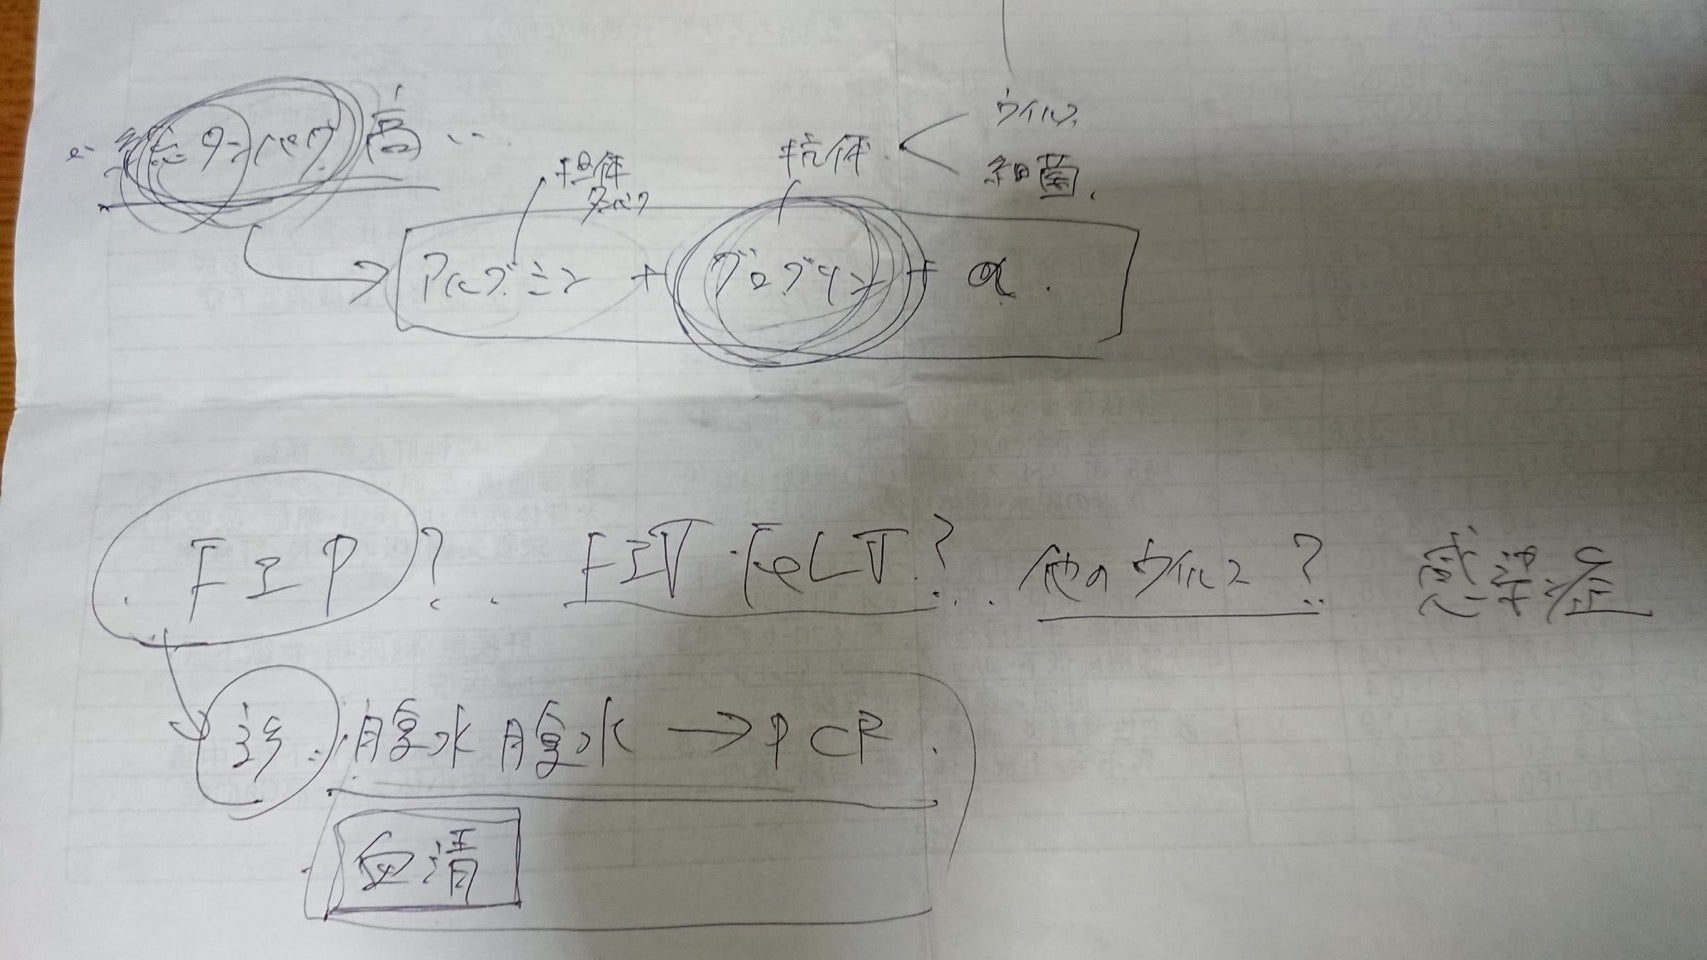 総タンパク 高
担体
タンパク
抗体
ウイルス
細菌.
アルブミン + グロブリン + α.
FIP? FIV・FeLV? 他のウイルス? 感染症
胸水 腹水 → PCR
血清